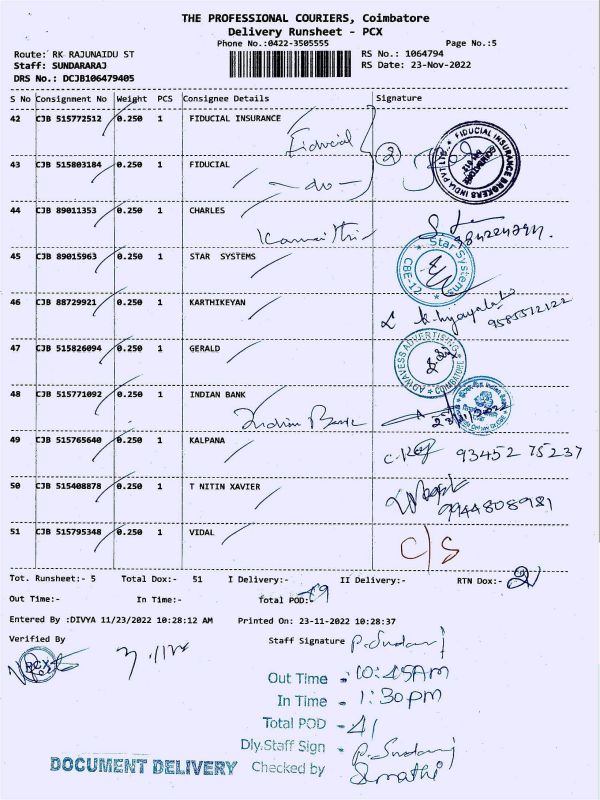 THE PROFESSIONAL COURIERS, Coimbatore
Delivery Runsheet - PCX
Phone No.:0422-3505555
Page No.:5
Route: RK RAJUNAIDU ST
RS No.: 1064794
Staff: SUNDARARAJ
RS Date: 23-Nov-2022
DRS No.: DCJB106479405
S No Consignment No Weight PCS Consignee Details Signature
42 CJB 515772512 0.250 1 FIDUCIAL INSURANCE
Fiducial
2
FIDUCIAL INSURANCE BROKERS INDIA PVT LTD
43 CJB 515803184 0.250 1 FIDUCIAL
-do-
44 CJB 89011353 0.250 1 CHARLES
45 CJB 89015963 0.250 1 STAR SYSTEMS
Star Systems
CBE-12
46 CJB 88729921 0.250 1 KARTHIKEYAN
9585512122
47 CJB 515826094 0.250 1 GERALD
ADWAVESS ADVERTISING
COIMBATORE
48 CJB 515771092 0.250 1 INDIAN BANK
Indian Bank
49 CJB 515765640 0.250 1 KALPANA
93452 75237
50 CJB 515408878 0.250 1 T NITIN XAVIER
9944808981
51 CJB 515795348 0.250 1 VIDAL
C/S
Tot. Runsheet:- 5 Total Dox:- 51 I Delivery:- II Delivery:- RTN Dox:- 2
Out Time:- In Time:- Total POD:- 49
Entered By :DIVYA 11/23/2022 10:28:12 AM Printed On: 23-11-2022 10:28:37
Verified By
Staff Signature P. Sundarraj
PCX
Out Time - 10:45AM
In Time - 1:30pm
Total POD - 41
Dly.Staff Sign - P. Sundarraj
DOCUMENT DELIVERY Checked by